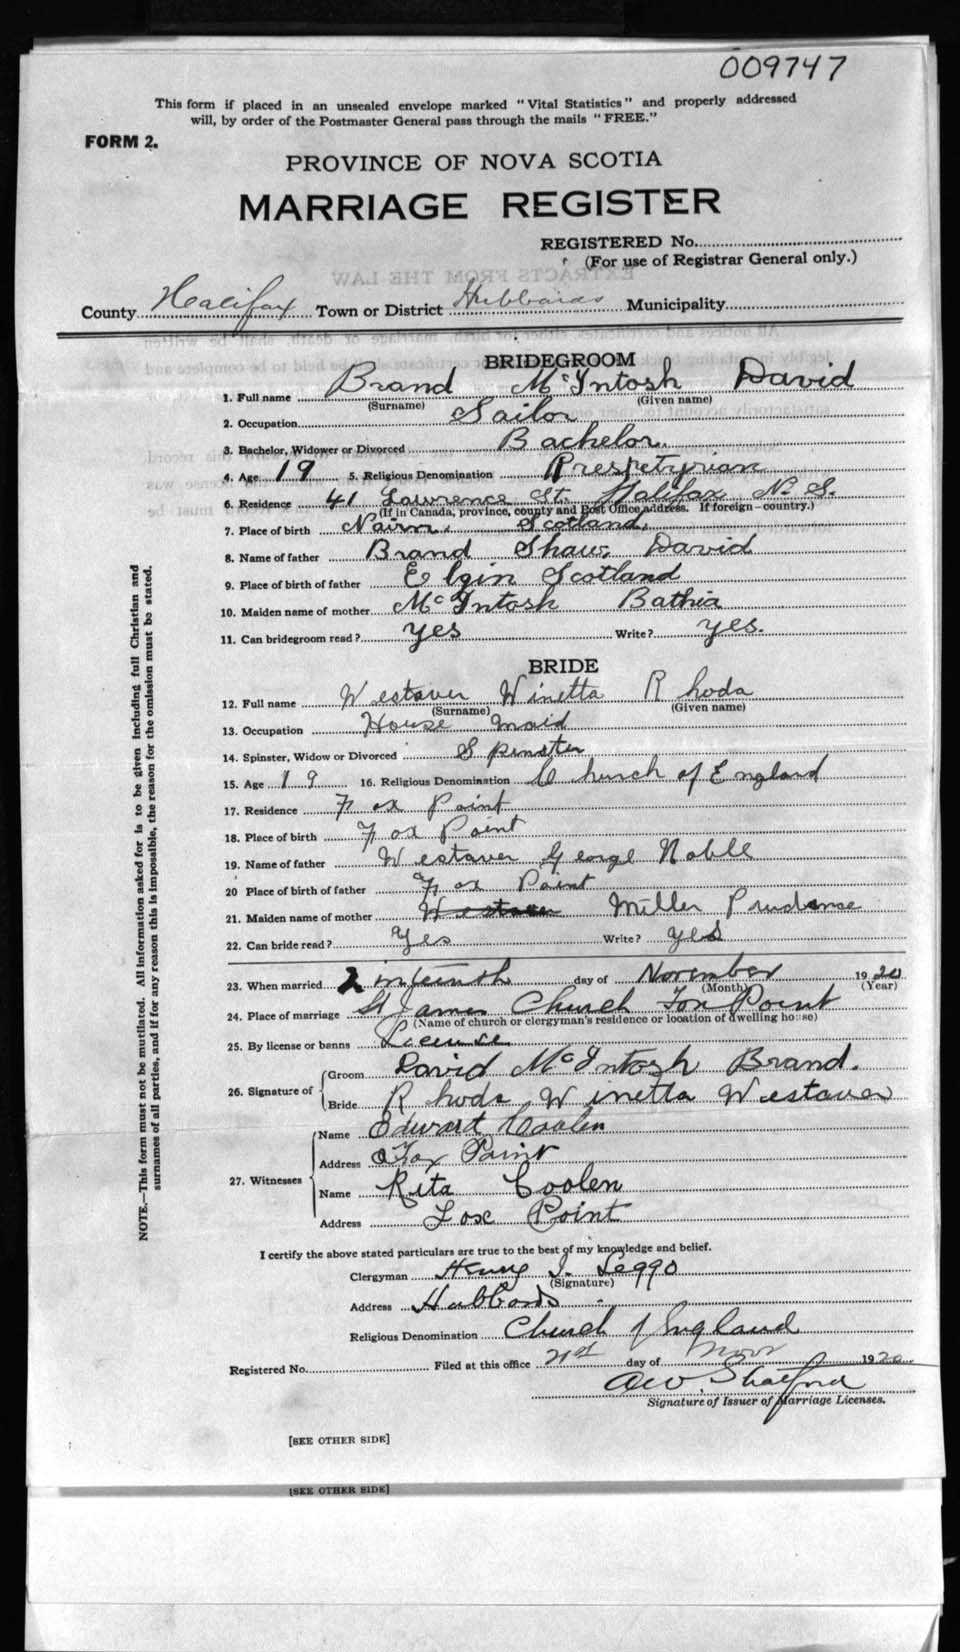 009747
This form if placed in an unsealed envelope marked "Vital Statistics" and properly addressed
will, by order of the Postmaster General pass through the mails "FREE."
FORM 2.
PROVINCE OF NOVA SCOTIA
MARRIAGE REGISTER
REGISTERED No.
(For use of Registrar General only.)
EXTRACTS FROM THE LAW
County Halifax Town or District Hubbards Municipality
BRIDEGROOM
1. Full name Brand McIntosh David
(Surname) (Given name)
2. Occupation Sailor
3. Bachelor, Widower or Divorced Bachelor.
4. Age 19 5. Religious Denomination Prespetyrian
6. Residence 41 Lawrence St. Halifax N. S.
(If in Canada, province, county and Post Office address. If foreign—country.)
7. Place of birth Nairn. Scotland.
8. Name of father Brand Shaw David
9. Place of birth of father Elgin Scotland
10. Maiden name of mother McIntosh Bathia
11. Can bridegroom read? yes Write? yes.
BRIDE
12. Full name Westaver Winetta Rhoda
(Surname) (Given name)
13. Occupation House maid
14. Spinster, Widow or Divorced Spinster
15. Age 19 16. Religious Denomination Church of England
17. Residence Fox Point
18. Place of birth Fox Point
19. Name of father Westaver George Noble
20 Place of birth of father Fox Point
21. Maiden name of mother Westaver Miller Prudence
22. Can bride read? Yes Write? yes
23. When married day of November 1920
(Month) (Year)
24. Place of marriage St James Church Fox Point
(Name of church or clergyman's residence or location of dwelling house)
25. By license or banns License
26. Signature of Groom David McIntosh Brand.
Bride Rhoda Winetta Westaver
27. Witnesses Name Edward Coolen
Address Fox Point
Name Rita Coolen
Address Fox Point
I certify the above stated particulars are true to the best of my knowledge and belief.
Clergyman Henry J. Leggo
(Signature)
Address Hubbards
Religious Denomination Church of England
Registered No. Filed at this office 21st day of Novr 1920
A W. Shatford
Signature of Issuer of Marriage Licenses.
[SEE OTHER SIDE]
[SEE OTHER SIDE]
NOTE.—This form must not be mutilated. All information asked for is to be given including full Christian and
surnames of all parties, and if for any reason this is impossible, the reason for the omission must be stated.